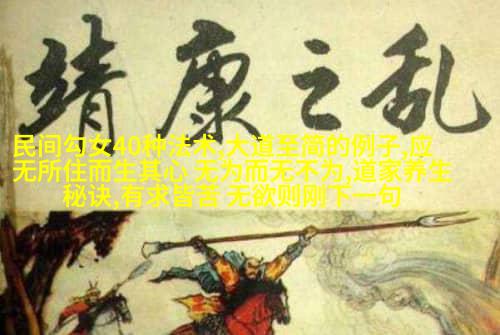 靖康之乱
民间勾女40种法术,大道至简的例子,应
无所住而生其心 无为而无不为,道家养生
秘诀,有求皆苦 无欲则刚下一句